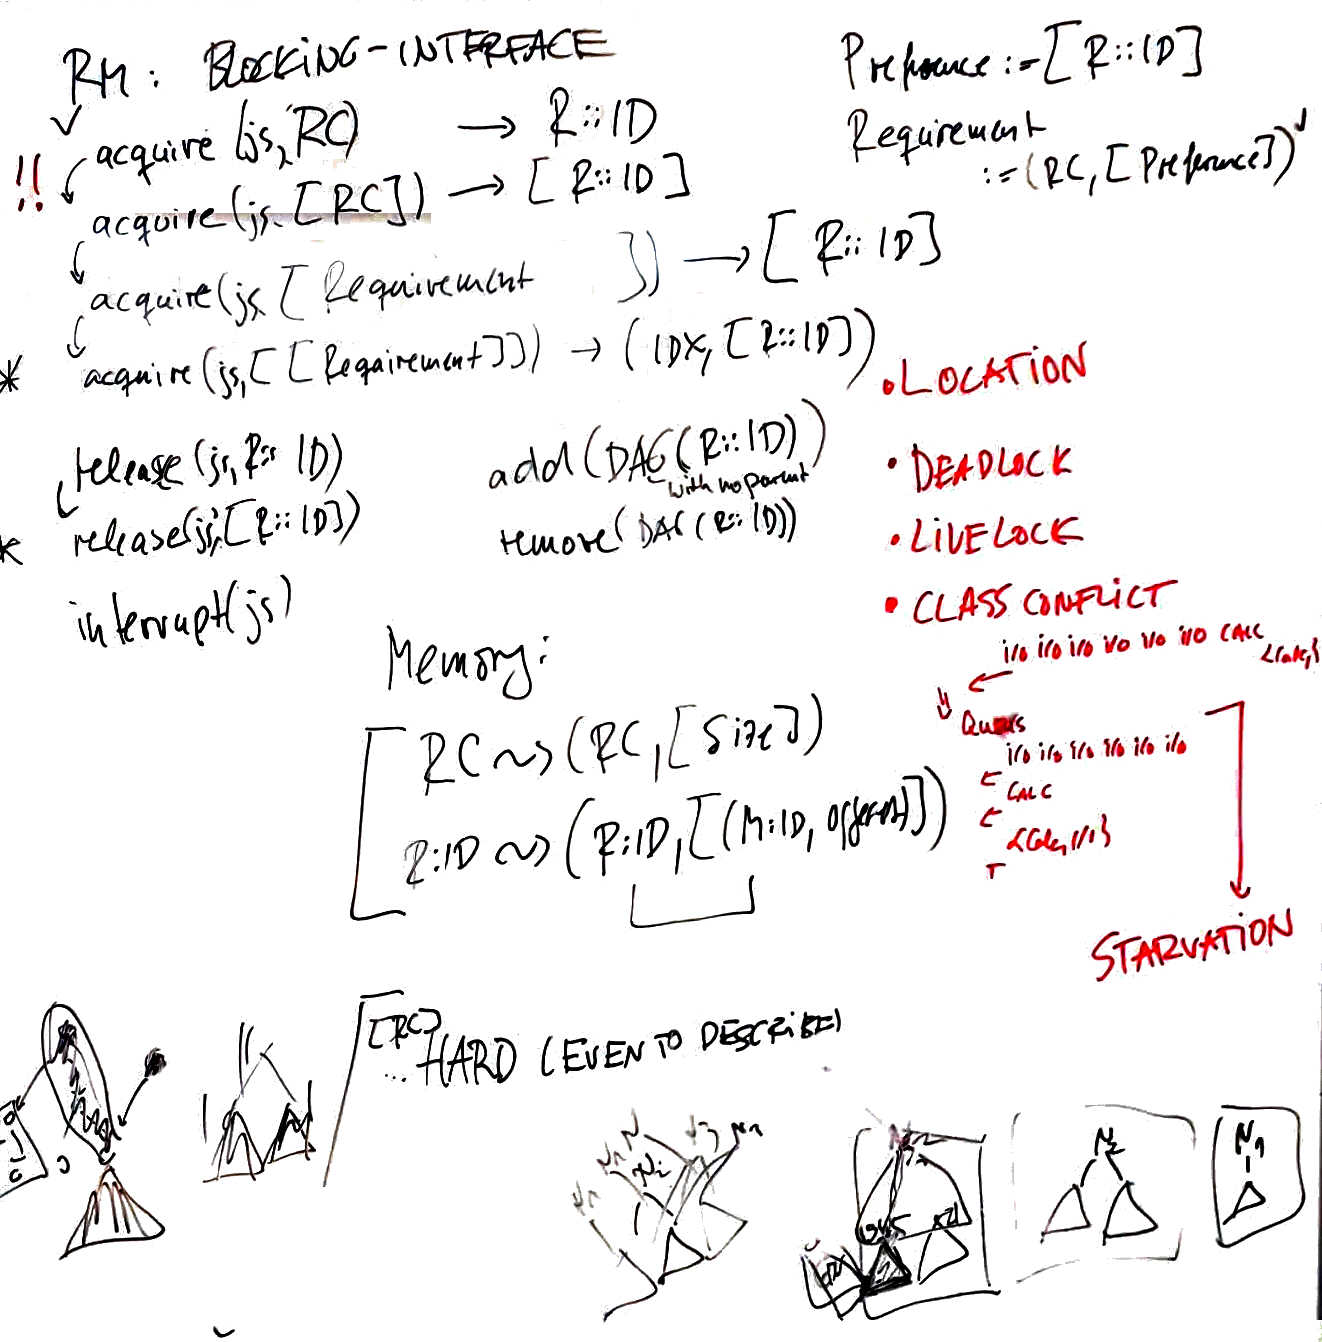 RM: BLOCKING-INTERFACE
acquire (js, RC) → R::ID
!! acquire (js, [RC]) → [R::ID]
acquire (js, [Requirement ]) → [R::ID]
* acquire (js, [[Requirement]]) → (IDX, [R::ID])
release (js, R::ID)
* release (js, [R::ID])
interrupt (js)
Preference := [R::ID]
Requirement
:= (RC, [Preference])
add (DAG (R::ID))
with no parent
remove (DAG (R::ID))
• LOCATION
• DEADLOCK
• LIVELOCK
• CLASS CONFLICT
i/o i/o i/o i/o i/o i/o CALC
i/o i/o i/o i/o i/o i/o
CALC
STARVATION
Memory:
RC ~> (RC, [Size])
R:ID ~> (R:ID, [(M:ID, offset)])
[RC]
... HARD (EVEN TO DESCRIBE)
N2
N1